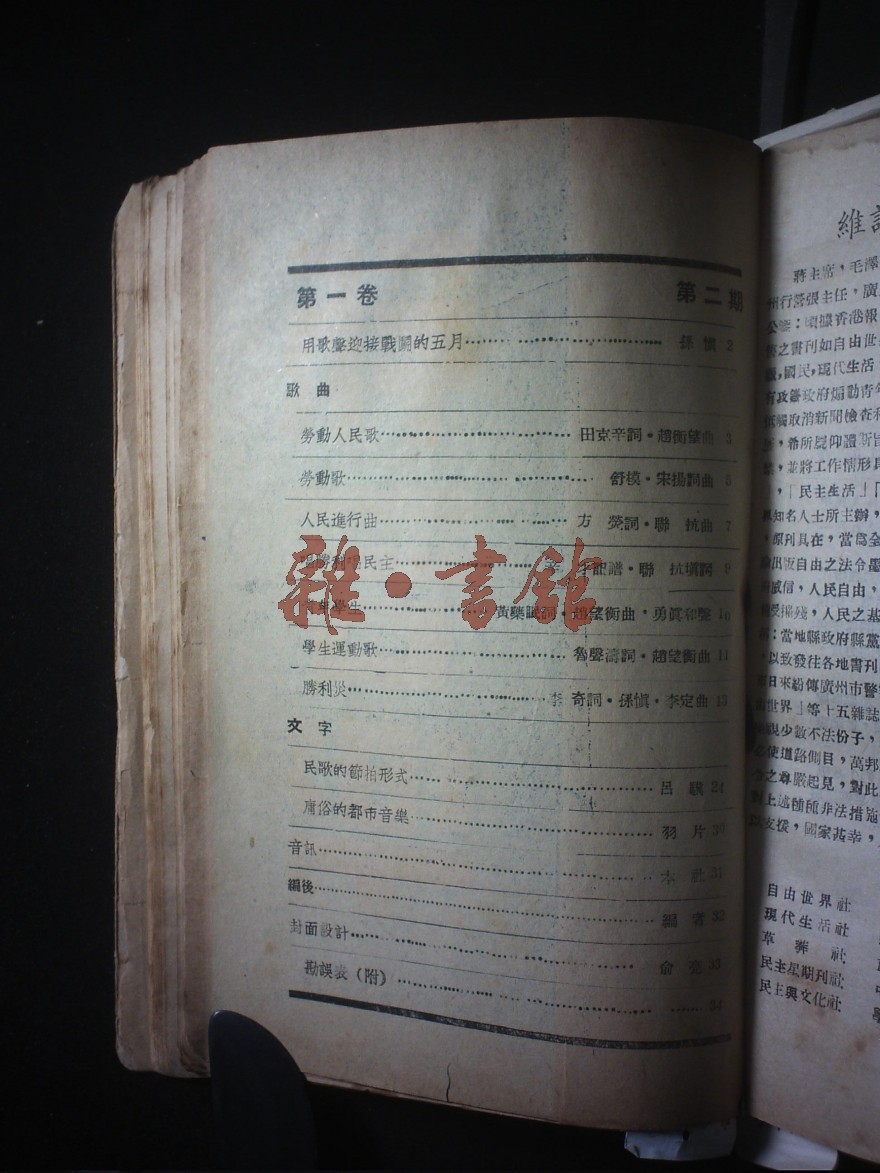 第一卷 第二期
用歌聲迎接戰鬭的五月 孫愼 2
歌曲
勞動人民歌 田克辛詞・趙衡望曲 3
勞動歌 舒模・宋揚詞曲 5
人民進行曲 方 熒詞・聯 抗曲 7
勝利 民主 配譜・聯 抗塡詞 9
靑年學生 黃藥眠詞・趙望衡曲,勇眞和聲 10
學生運動歌 魯聲濤詞・趙望衡曲 11
勝利災 李奇詞・孫愼・李定曲 13
文字
民歌的節拍形式 呂驥 24
庸俗的都市音樂 羽片
音訊 本社
編後 編者 33
封面設計 俞亮 33
勘誤表(附) 34
雜・書館
維
蔣主席,毛澤
州行營張主任,廣
公鑒:頃據香港報
傳之書刊如自由世
國民,現代生活
有攻籲政府煽動靑年
抵觸取消新聞檢查和
希所屬仰體斯旨
並將工作情形具
,「民主生活」「
知名人士所主辦,
原刊具在,當爲全
出版自由之法令
威信,人民自由,
受摧殘,人民之基
當地縣政府縣黨
以致發往各地書刊
日來紛傳廣州市警
世界」等十五雜誌
少數不法份子,
使道路側目,萬邦
之尊嚴起見,對此
上述種種非法措施
支援,國家甚幸,
自由世界社
現代生活社
草莽社
民主星期刊社
民主與文化社